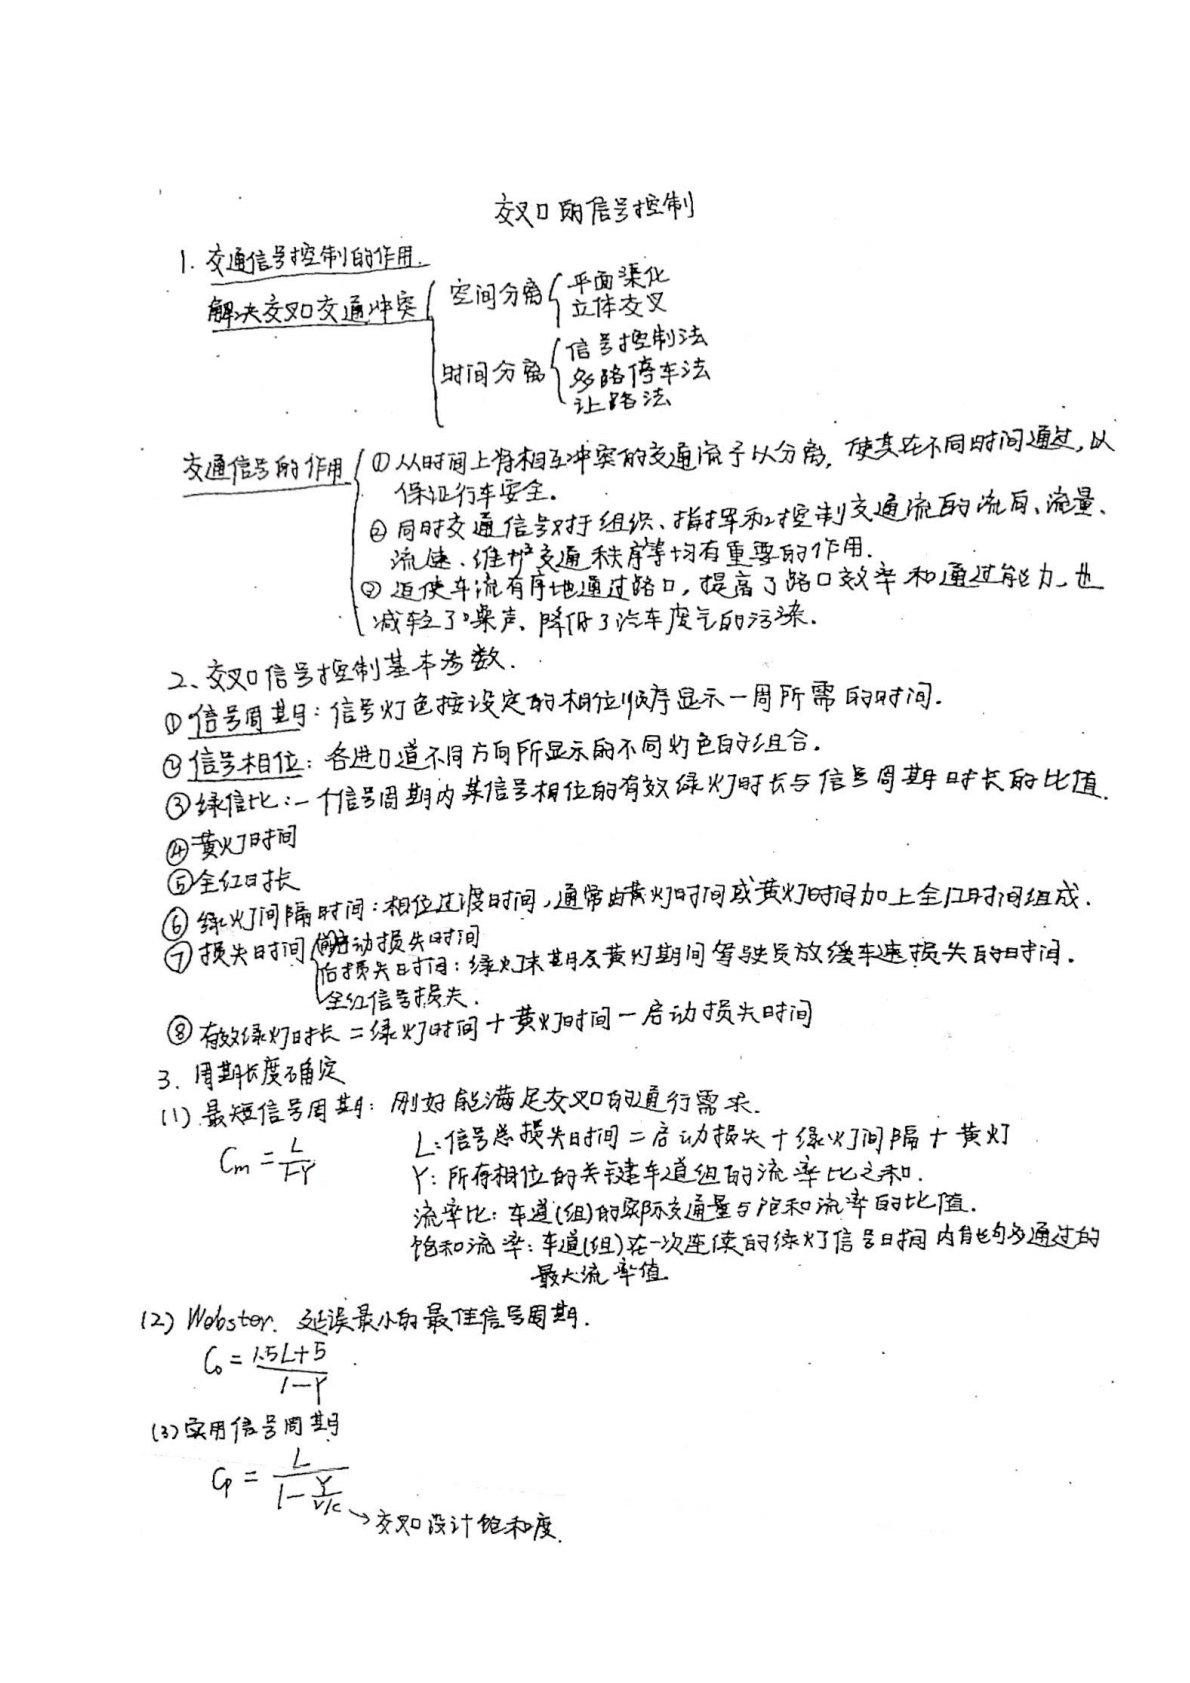 交叉口的信号控制
1. 交通信号控制的作用.
解决交叉口交通冲突
空间分离
平面渠化
立体交叉
时间分离
信号控制法
多路停车法
让路法
交通信号的作用
①从时间上将相互冲突的交通流予以分离, 使其在不同时间通过, 以
保证行车安全.
②同时交通信号对于组织、指挥和控制交通流的流向、流量、
流速、维护交通秩序等均有重要的作用.
③迫使车流有序地通过路口, 提高了路口效率和通过能力, 也
减轻了噪声、降低了汽车废气的污染.
2、交叉口信号控制基本参数.
①信号周期: 信号灯色按设定的相位顺序显示一周所需的时间.
②信号相位: 各进口道不同方向所显示的不同灯色的组合.
③绿信比: 一个信号周期内某信号相位的有效绿灯时长与信号周期时长的比值.
④黄灯时间
⑤全红时长
⑥绿灯间隔时间: 相位过渡时间, 通常由黄灯时间或黄灯时间加上全红时间组成.
⑦损失时间
启动损失时间
后损失时间: 绿灯末期及黄灯期间驾驶员放缓车速损失的时间.
全红信号损失.
⑧有效绿灯时长 = 绿灯时间 + 黄灯时间 - 启动损失时间
3. 周期长度确定
(1) 最短信号周期: 刚好能满足交叉口的通行需求.
Cm = L/1-Y
L: 信号总损失时间 = 启动损失 + 绿灯间隔 + 黄灯
Y: 所有相位的关键车道组的流率比之和.
流率比: 车道(组)的实际交通量与饱和流率的比值.
饱和流率: 车道(组)在一次连续的绿灯信号时间内能够通过的
最大流率值
(2) Webster. 延误最小的最佳信号周期.
Co = 1.5L+5/1-Y
(3) 实用信号周期
Cp = L/1-Y/v/c
→交叉口设计饱和度.